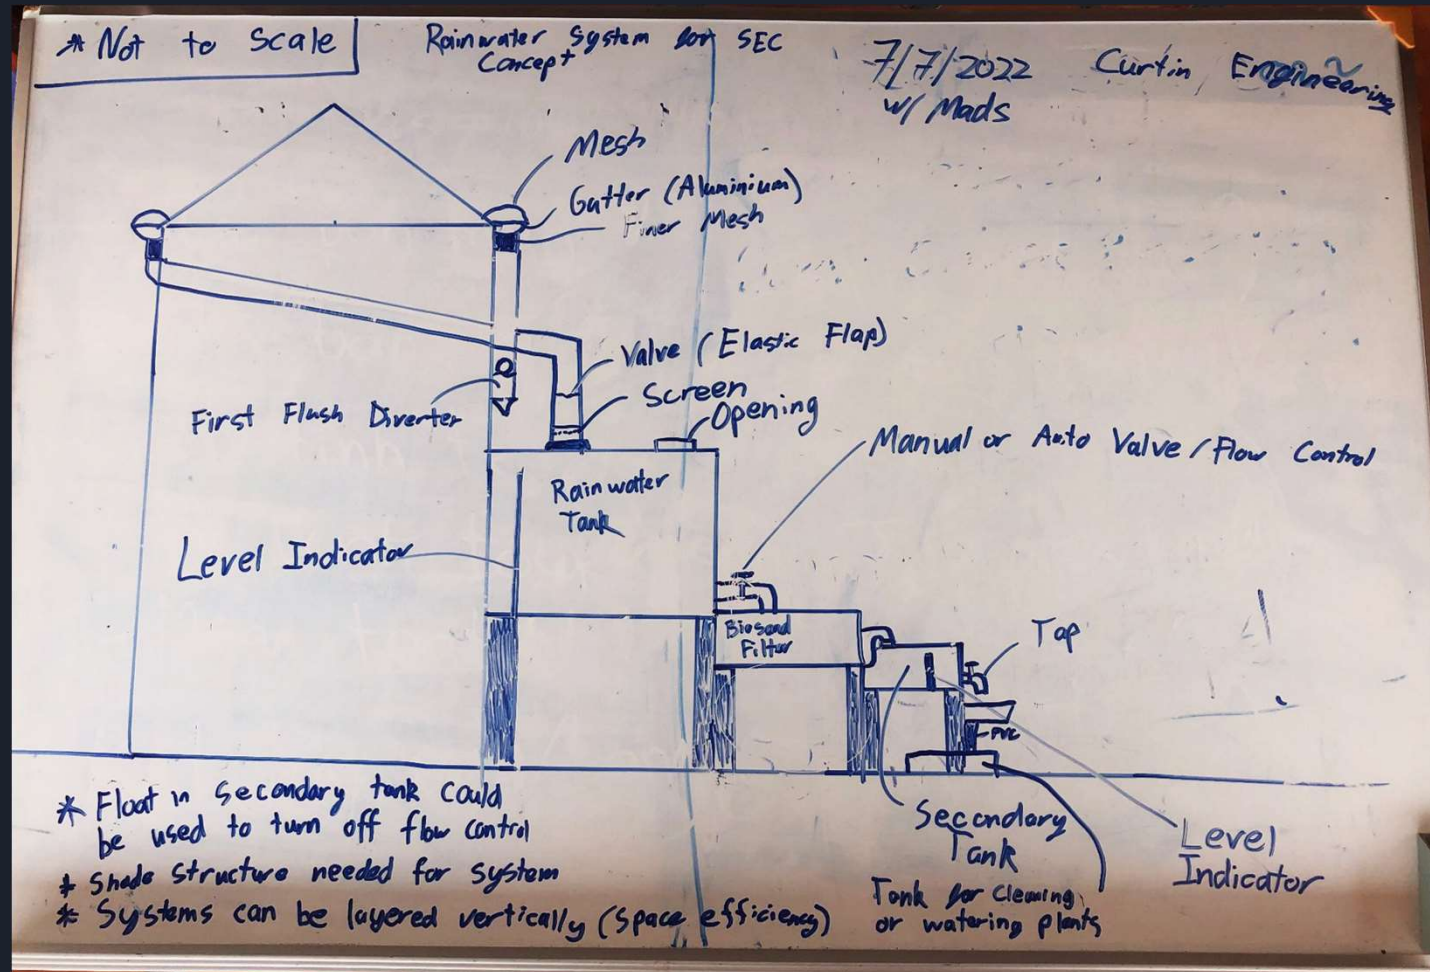 * Not to Scale
Rainwater System for SEC
Concept
7/7/2022
w/ Mads
Curtin Engineering
Mesh
Gutter (Aluminium)
Finer Mesh
Valve (Elastic Flap)
Screen
Opening
First Flush Diverter
Manual or Auto Valve / Flow Control
Rainwater
Tank
Level Indicator
Biosand
Filter
Tap
PVC
Secondary
Tank
Level
Indicator
Tank for cleaning
or watering plants
* Float in secondary tank could
be used to turn off flow control
* Shade structure needed for system
* Systems can be layered vertically (Space efficiency)